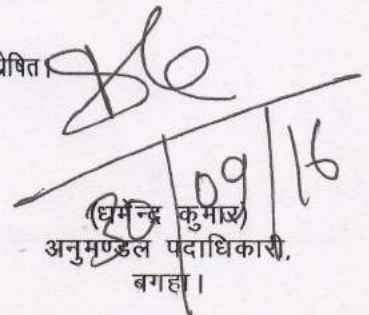 प्रेषित।
30/09/16
(धर्मेन्द्र कुमार)
अनुमण्डल पदाधिकारी,
बगहा।